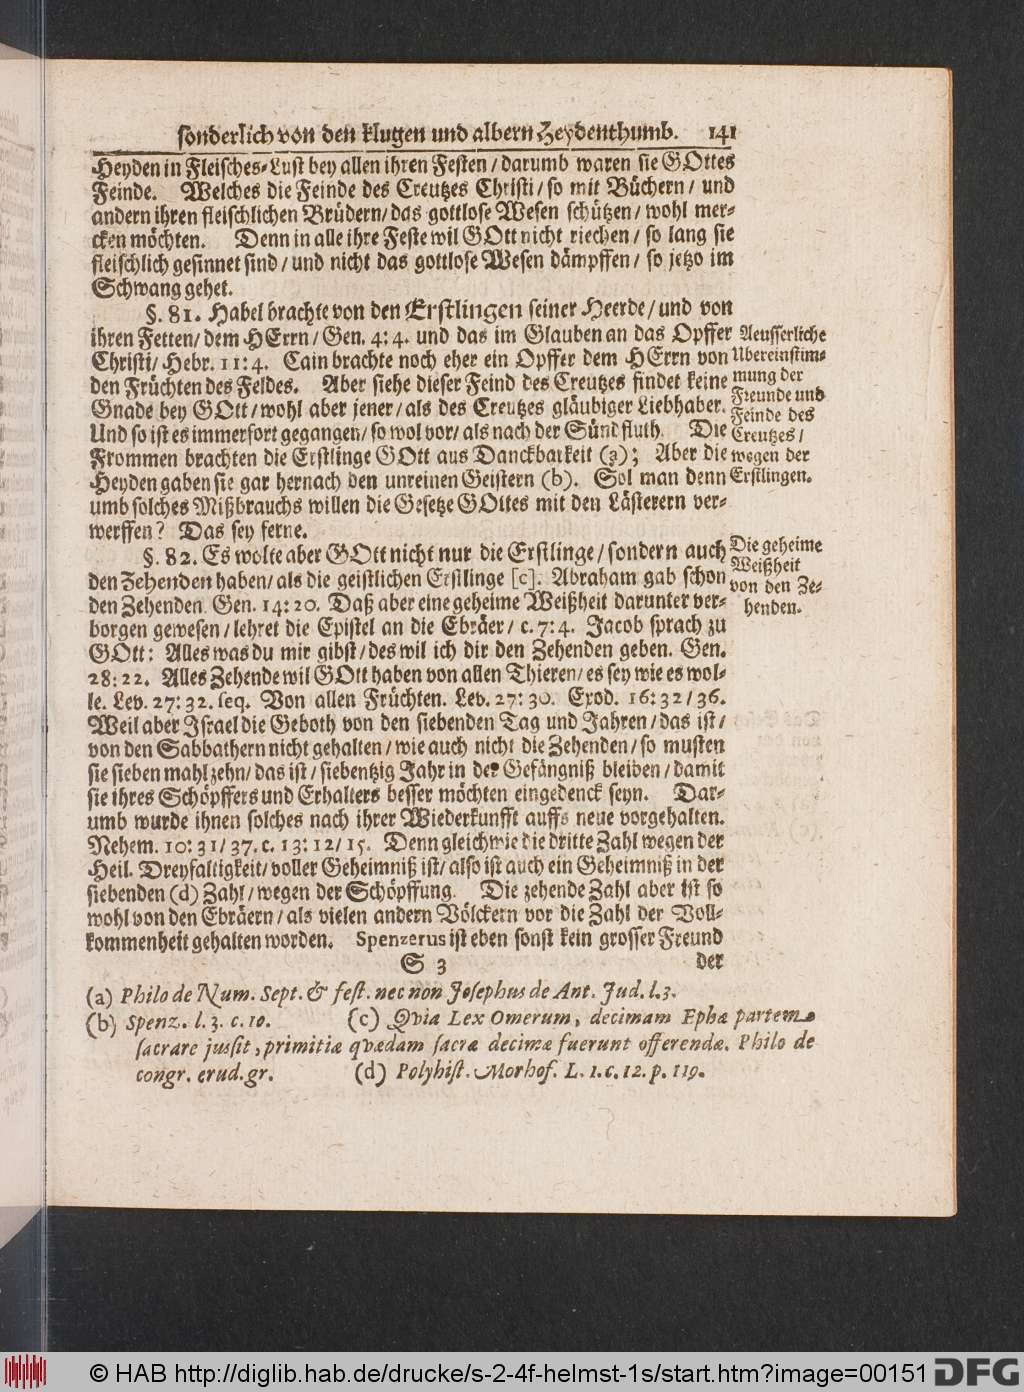 sonderlich von den klugen und albern Heydenthumb. 141
Heyden in Fleisches-Lust bey allen ihren Festen / darumb waren sie GOttes
Feinde. Welches die Feinde des Creutzes Christi / so mit Büchern / und
andern ihren fleischlichen Brüdern / das gottlose Wesen schützen / wohl mer-
cken möchten. Denn in alle ihre Feste wil GOtt nicht riechen / so lang sie
fleischlich gesinnet sind / und nicht das gottlose Wesen dämpffen / so jetzo im
Schwang gehet.
§. 81. Habel brachte von den Erstlingen seiner Heerde / und von
ihren Fetten / dem HErrn / Gen. 4: 4. und das im Glauben an das Opffer
Christi / Hebr. 11: 4. Cain brachte noch eher ein Opffer dem HErrn von
den Früchten des Feldes. Aber siehe dieser Feind des Creutzes findet keine
Gnade bey GOtt / wohl aber jener / als des Creutzes gläubiger Liebhaber.
Und so ist es immerfort gegangen / so wol vor / als nach der Sündfluth. Die
Frommen brachten die Erstlinge GOtt aus Danckbarkeit (a); Aber die
Heyden gaben sie gar hernach den unreinen Geistern (b). Sol man denn
umb solches Mißbrauchs willen die Gesetze GOttes mit den Lästerern ver-
werffen? Das sey ferne.
Aeusserliche
Ubereinstim-
mung der
Freunde und
Feinde des
Creutzes /
wegen der
Erstlingen.
§. 82. Es wolte aber GOtt nicht nur die Erstlinge / sondern auch
den Zehenden haben / als die geistlichen Erstlinge [c]. Abraham gab schon
den Zehenden. Gen. 14: 20. Daß aber eine geheime Weißheit darunter ver-
borgen gewesen / lehret die Epistel an die Ebräer / c. 7: 4. Jacob sprach zu
GOtt: Alles was du mir gibst / des wil ich dir den Zehenden geben. Gen.
28: 22. Alles Zehende wil GOtt haben von allen Thieren / es sey wie es wol-
le. Lev. 27: 32. seq. Von allen Früchten. Lev. 27: 30. Exod. 16: 32 / 36.
Weil aber Israel die Geboth von den siebenden Tag und Jahren / das ist /
von den Sabbathern nicht gehalten / wie auch nicht die Zehenden / so musten
sie sieben mahl zehn / das ist / siebentzig Jahr in der Gefängniß bleiben / damit
sie ihres Schöpffers und Erhalters besser möchten eingedenck seyn. Dar-
umb wurde ihnen solches nach ihrer Wiederkunfft auffs neue vorgehalten.
Nehem. 10: 31 / 37. c. 13: 12 / 15. Denn gleichwie die dritte Zahl wegen der
Heil. Dreyfaltigkeit / voller Geheimniß ist / also ist auch ein Geheimniß in der
siebenden (d) Zahl / wegen der Schöpffung. Die zehende Zahl aber ist so
wohl von den Ebräern / als vielen andern Völckern vor die Zahl der Voll-
kommenheit gehalten worden. Spenzerus ist eben sonst kein grosser Freund
Die geheime
Weißheit
von den Ze-
henden.
S 3 der
(a) Philo de Num. Sept. & fest. nec non Josephus de Ant. Jud. l. 3.
(b) Spenz. l. 3. c. 10. (c) Qvia Lex Omerum, decimam Ephæ partem
sacrare jussit, primitiæ qvædam sacræ decimæ fuerunt offerendæ. Philo de
congr. erud. gr. (d) Polyhist. Morhof. L. 1. c. 12. p. 119.
© HAB http://diglib.hab.de/drucke/s-2-4f-helmst-1s/start.htm?image=00151 DFG